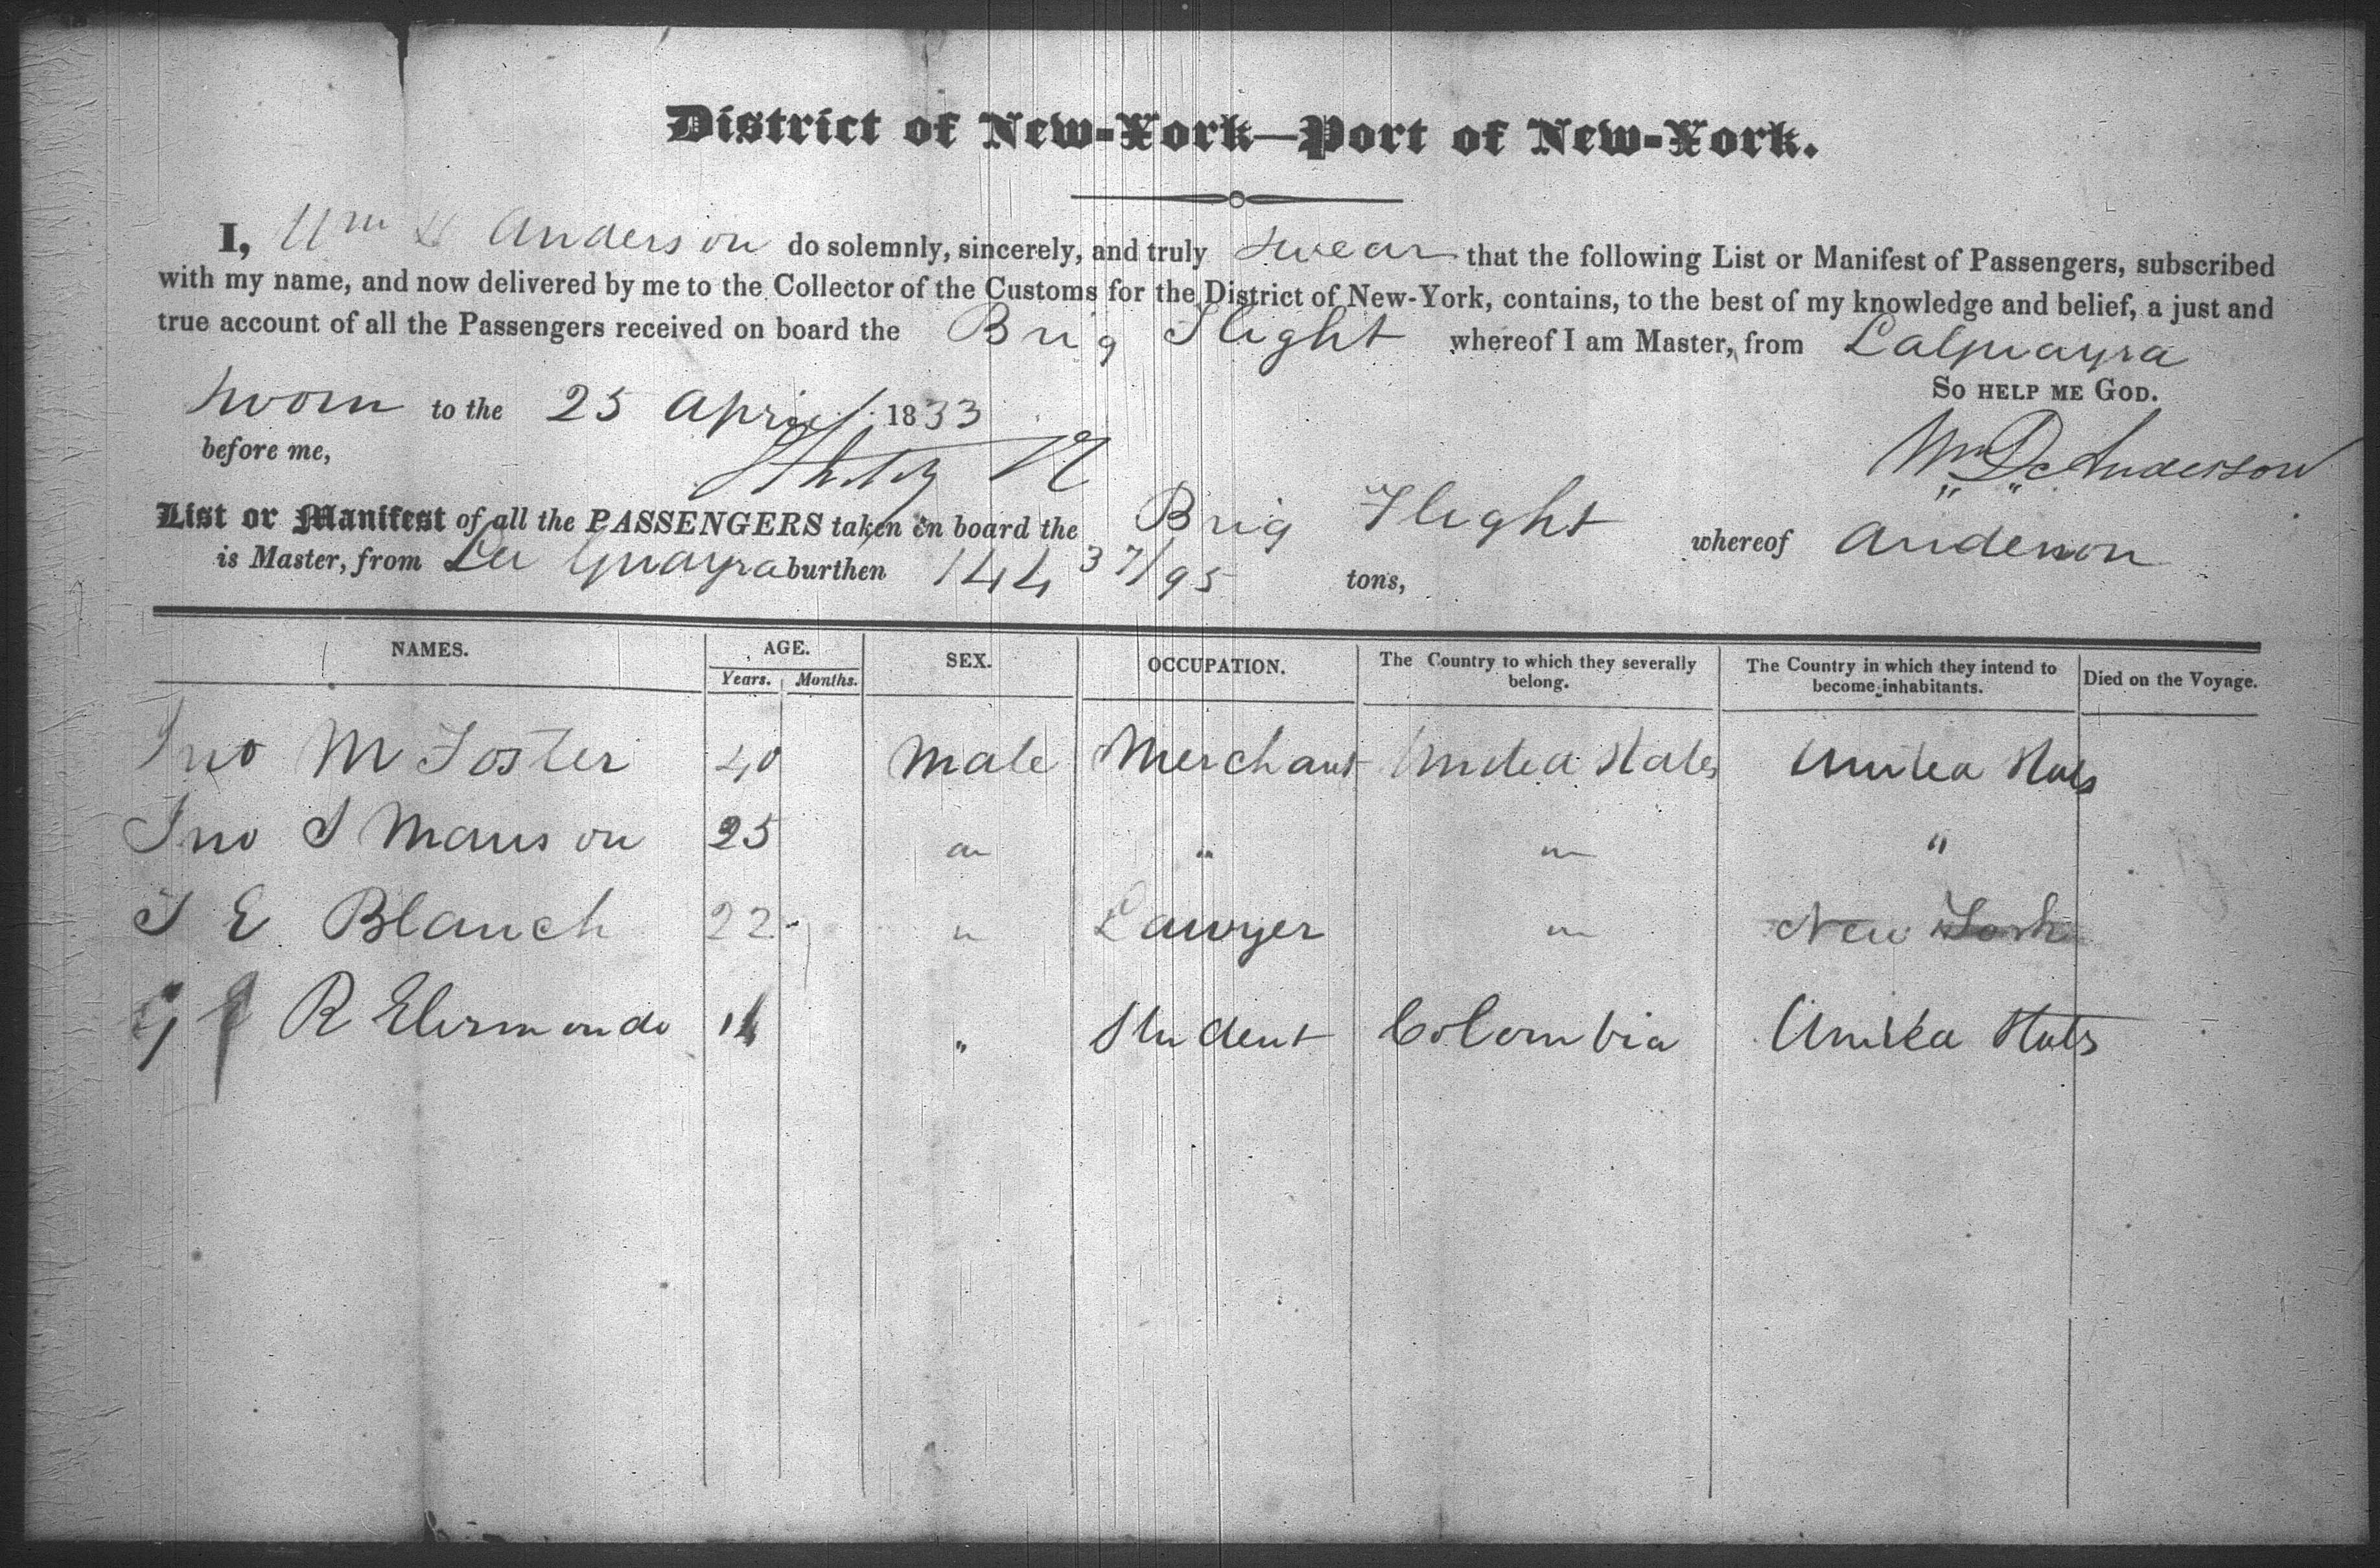 District of New-York—Port of New-York.
I, Wm D Anderson do solemnly, sincerely, and truly swear that the following List or Manifest of Passengers, subscribed
with my name, and now delivered by me to the Collector of the Customs for the District of New-York, contains, to the best of my knowledge and belief, a just and
true account of all the Passengers received on board the Brig Flight whereof I am Master, from LaGuayra
Sworn to the 25 April 1833 So help me God.
before me, Wm Dc Anderson
List or Manifest of all the PASSENGERS taken on board the Brig Flight whereof Anderson
is Master, from La Guayra burthen 144 37/95 tons,
NAMES. AGE. Years. Months. SEX. OCCUPATION. The Country to which they severally belong. The Country in which they intend to become inhabitants. Died on the Voyage.
Jno M Foster 40 Male Merchant United States United States
Jno S Manson 25 " " " "
J E Blanch 22 " Lawyer " New York
G R Elermondo " Student Colombia United States